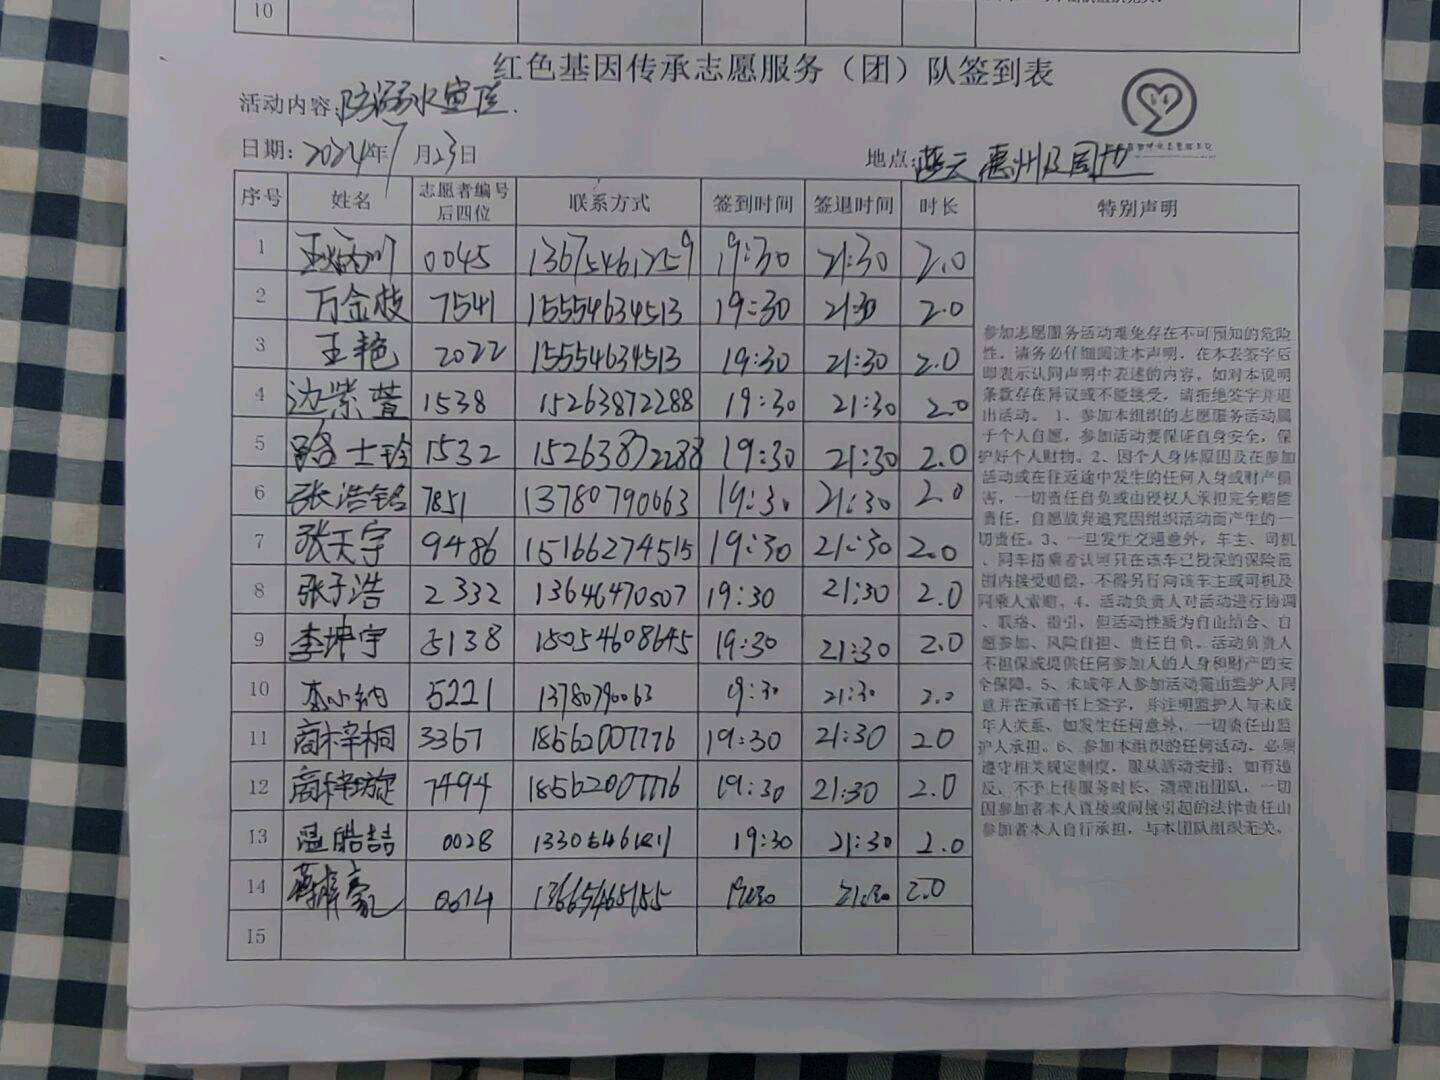 10
红色基因传承志愿服务（团）队签到表
活动内容：防溺水宣传.
日期：2024年7月23日
地点：
序号 姓名 志愿者编号后四位 联系方式 签到时间 签退时间 时长 特别声明
1 0045 13675461259 19:30 21:30 2.0
2 万金枝 7541 15554634513 19:30 21:30 2.0
3 王艳 2022 15554634513 19:30 21:30 2.0
4 边紫萱 1538 15263872288 19:30 21:30 2.0
5 路士玲 1532 15263872288 19:30 21:30 2.0
6 张浩铭 7851 13780790063 19:30 21:30 2.0
7 张天宇 9486 15166274515 19:30 21:30 2.0
8 张子浩 2332 13646470507 19:30 21:30 2.0
9 李坤宇 5138 18054608645 19:30 21:30 2.0
10 李小纳 5221 13780790063 19:30 21:30 2.0
11 商梓桐 3367 18562007776 19:30 21:30 2.0
12 7494 18562007776 19:30 21:30 2.0
13 温皓喆 0028 19:30 21:30 2.0
14 13665465155 19:30 21:30 2.0
15
参加志愿服务活动难免存在不可预知的危险
性，请务必仔细阅读本声明，在本表签字后
即表示认同声明中表述的内容，如对本说明
条款存在异议或不能接受，请拒绝签字并退
出活动。 1、参加本组织的志愿服务活动属
于个人自愿，参加活动要保证自身安全，保
护好个人财物。2、因个人身体原因及在参加
活动或在往返途中发生的任何人身或财产损
害，一切责任自负或由侵权人承担完全赔偿
责任，自愿放弃追究因组织活动而产生的一
切责任。3、一旦发生交通意外，车主、司机
、同车搭乘者认可只在该车已投保的保险范
围内接受赔偿，不得另行向该车主或司机及
同乘人索赔。4、活动负责人对活动进行协调
、联络、指引，但活动性质为自由结合、自
愿参加、风险自担、责任自负。活动负责人
不担保或提供任何参加人的人身和财产的安
全保障。5、未成年人参加活动需由监护人同
意并在承诺书上签字，并注明监护人与未成
年人关系，如发生任何意外，一切责任由监
护人承担。6、参加本组织的任何活动，必须
遵守相关规定制度，服从活动安排；如有违
反，不予上传服务时长，清理出团队，一切
因参加者本人直接或间接引起的法律责任由
参加者本人自行承担，与本团队组织无关。